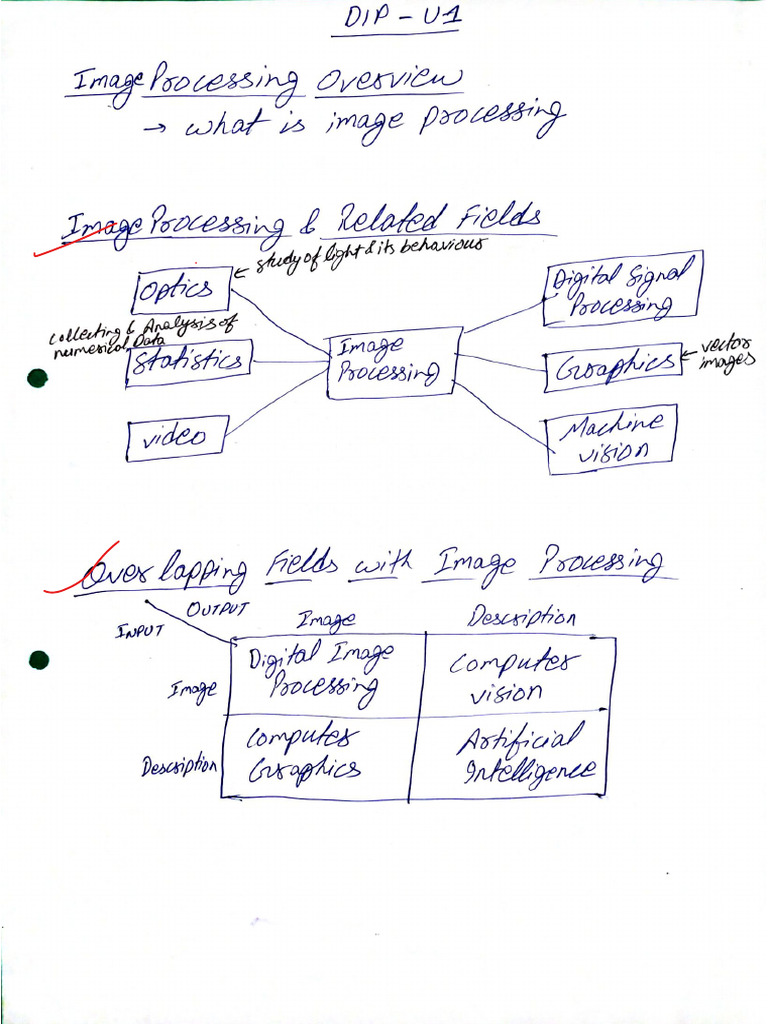 DIP - U1
Image Processing Overview
→ what is image processing
Image Processing & Related Fields
← study of light & its behaviour
Optics
Collecting & Analysis of
numerical Data
Statistics
video
Image
Processing
Digital Signal
Processing
Graphics
← vector
images
Machine
vision
Overlapping Fields with Image Processing
OUTPUT
INPUT
Image
Description
Image
Digital Image
Processing
Computer
vision
Description
Computer
Graphics
Artificial
Intelligence